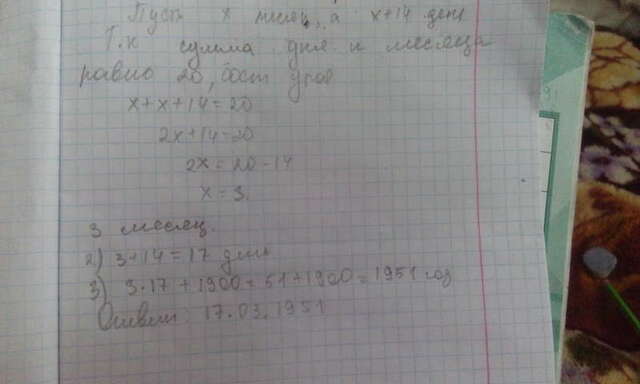 Пусть x месяц, а x+14 день
Т.к сумма дня и месяца
равно 20, сост урав
x+x+14=20
2x+14=20
2x=20-14
x=3.
3 месяц.
2) 3+14=17 день
3) 3·17+1900=51+1900=1951 год
Ответ: 17.03.1951